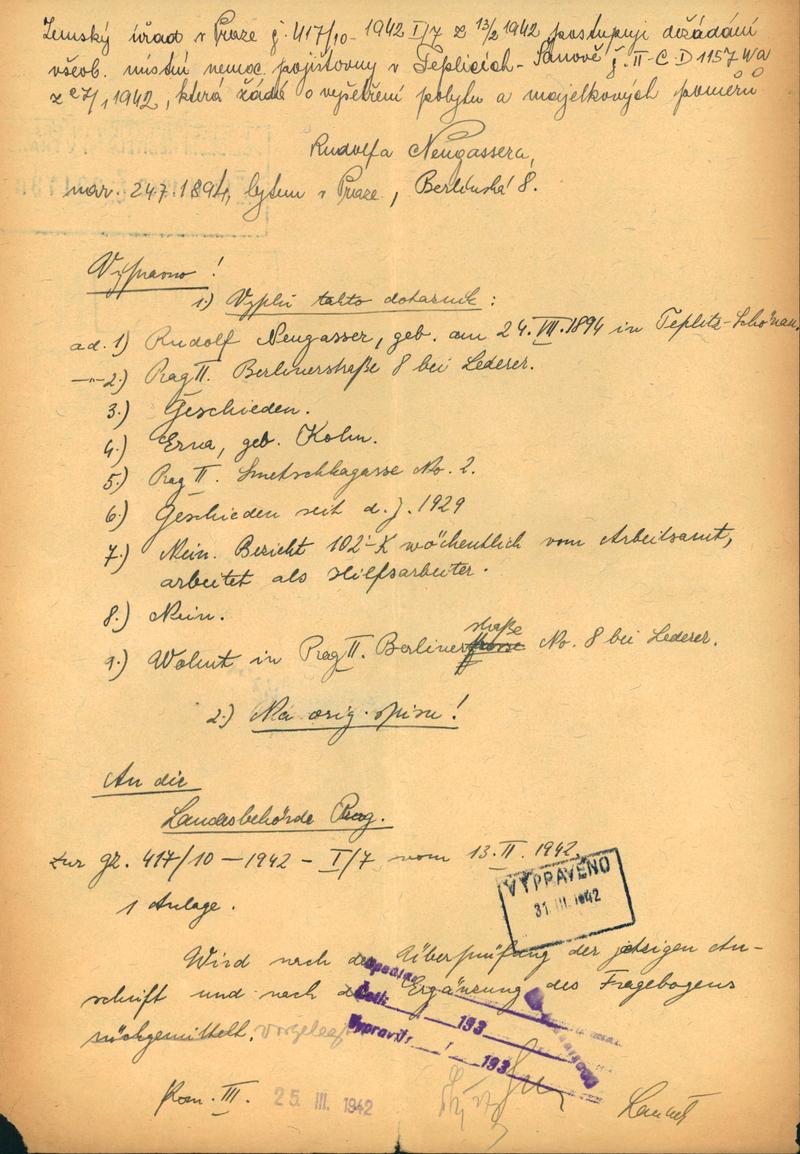 Zemský úřad v Praze č. 417/10 - 1942 I/7 z 13/2 1942 postupuje dožádání
všeob. místní nemoc. pojišťovny v Teplicích - Šanově č. II - C - D 1157 Wa
z 27/1 1942, která žádá o vyšetření pobytu a majetkových poměrů
Rudolfa Neugassera,
nar. 24.7.1894, bytem v Praze, Berlínská 8.
Vypraviti!
1.) Vyplň takto dotazník:
ad. 1) Rudolf Neugasser, geb. am 24.VII.1894 in Teplitz-Schönau.
—"— 2.) Prag II. Berlinerstraße 8 bei Lederer.
3.) Geschieden.
4.) Erna, geb. Kohn.
5.) Prag II. Smetschkagasse No. 2.
6.) Geschieden seit d. J. 1929
7.) Nein. Bezieht 102·- K wöchentlich vom Arbeitsamt,
arbeitet als Hilfsarbeiter.
8.) Nein.
9.) Wohnt in Prag II. Berliner straße No. 8 bei Lederer.
2.) Na orig. spisu!
An die
Landesbehörde Prag.
zur gz. 417/10 — 1942 — I/7 vom 13.II.1942
1 Anlage.
VYPRAVENO
31. III. 1942
Wird nach der Überprüfung der jetzigen An-
schrift und nach Ergänzung des Fragebogens
vorgelegt
Četl: 193
Vypravil: 193
Kom. III. 25. III. 1942